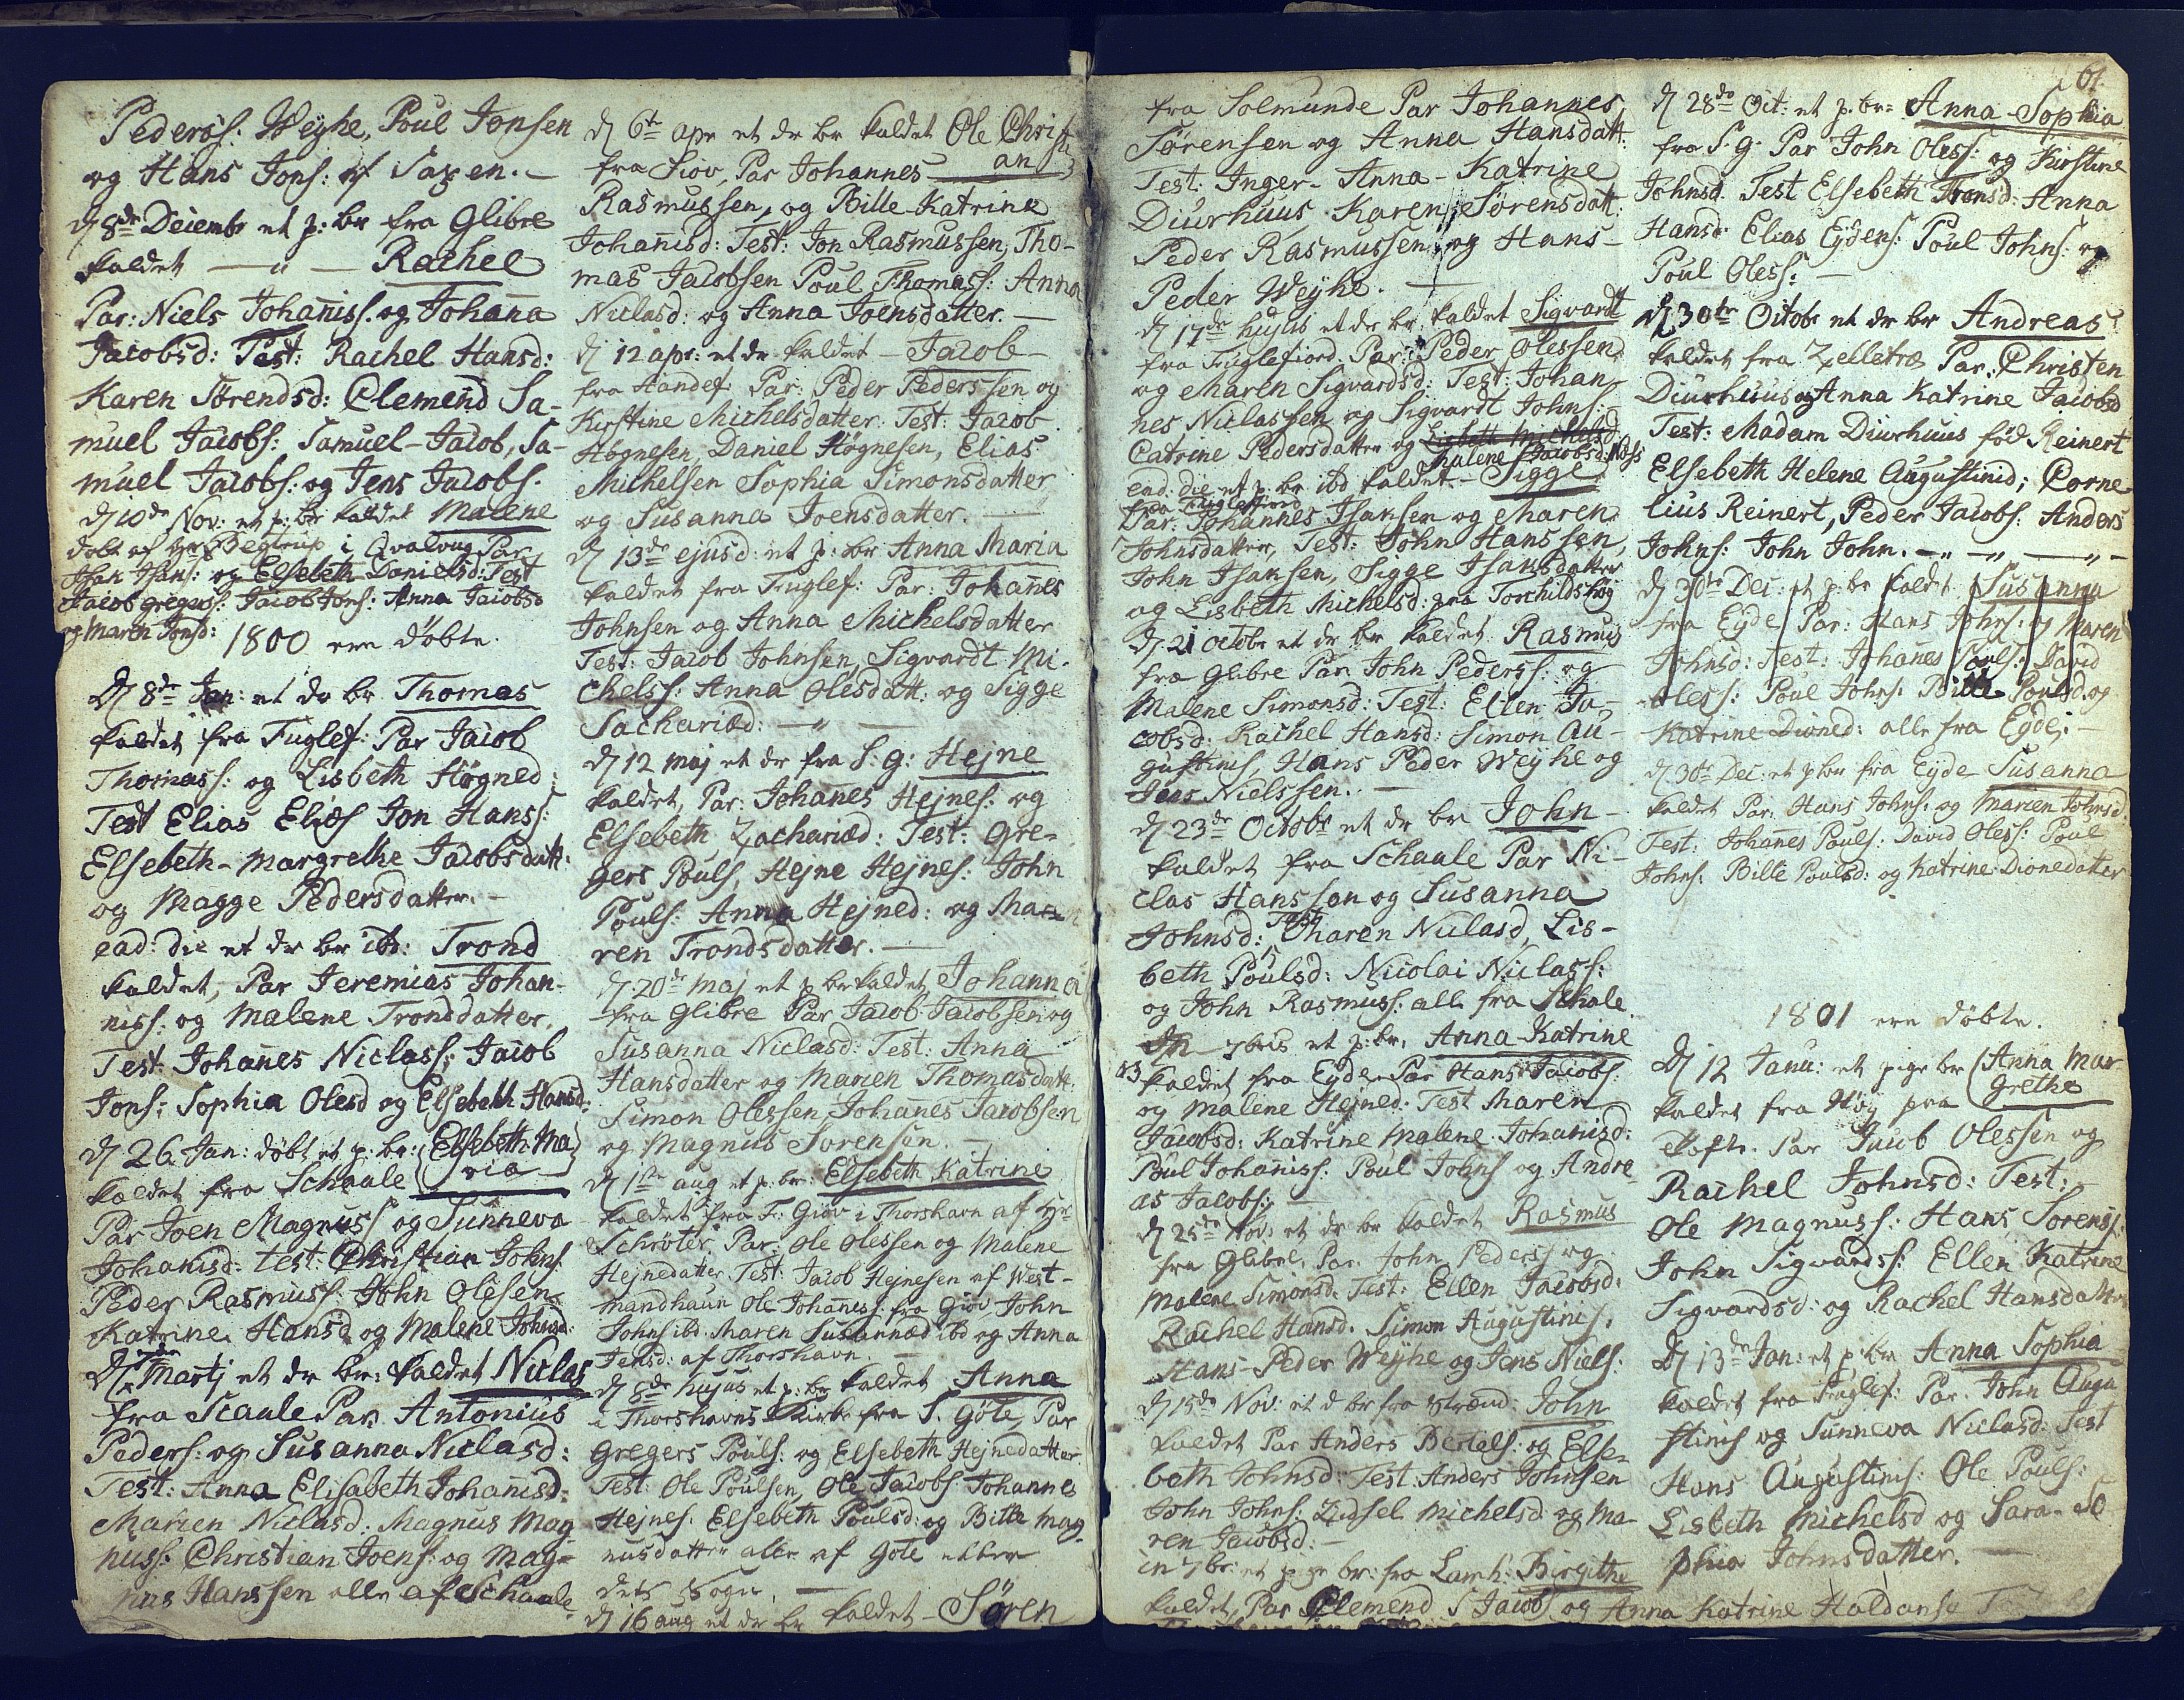 Pedersf: Weyhe, Poul Jonsen
og Hans Jonf: af Saxen.-
d 8de Decembr et p: br fra Glibre
kaldet — " — Rachel
Par: Niels Johanisf. og Johana
Jacobsd: Test: Rachel Hansd:
Karen Sörendsd: Clemend Sa-
muel Jacobf: Samuel-Jacob, Sa-
muel Jacobf: og Jens Jacobf.
d 10de Nov: et p: br kaldet Malene
döbt af Hr Begtrup i Qvalvug Par
Isan Isans: og Elsebeth Danielsd: Test
Jacob gregersf: Jacob Jonf: Anna Jacobsd
og Maren Jonsd:
1800 ere döbte.
D 8de Jan: et dr br Thomas
kaldet fra Fuglef: Par Jacob
Thomass: og Lisbeth Högned:
Test Elias Eliasf Jon Hansf:
Elsebeth-Margrethe Jacobsdatt:
og Magge Pedersdatter.-
ead: die et dr br ibd: Trond
kaldet, Par Jeremias Johan-
nisf: og Malene Tronddatter,
Test: Johanes Niclasf: Jacob
Jonf: Sophia Olesd og Elsebeth Hansd:
d 26 Jan: döbt et p: br: Elsebeth Ma
ria
kaldet fra Schaale
Par Joen Magnusf og Sunneva
Johanisd: Test: Christian Johnf.
Peder Rasmusf: John Olesen
Katrine Hansd og Malene Johnsd:
D 7de Martj et dr br: kaldet Niclas
fra Scaale Par: Antonius
Pedersf: og Susanna Niclasd:
Test: Anna Elisabeth Johanisd:
Marien Niclasd: Magnus Mag
nusf: Christian Joenf: og Mag-
nus Hanssen alle af Schaale
d 6te apr et dr br kaldet Ole Christi
an
fra Giov, Par Johannes
Rasmussen, og Bille-Katrine
Johanisd: Test: Jon Rasmussen, Tho-
mas Jacobsen Poul Thomasf: Anna
Niclasd: og Anna Joensdatter.—
d 12 apr: et dr kaldet — Jacob —
fra Handef: Par: Peder Pederssen og
Kirstine Michelsdatter. Test: Jacob
Högnesen, Daniel Högnesen, Elias
Michelsen Sophia Simonsdatter
og Susanna Joensdatter.
d 13de ejusd: et p: br Anna Maria
kaldet fra Fuglef: Par: Johanes
Johnsen og Anna Michelsdatter
Test: Jacob Johnsen, Sigvardt Mi-
chelsf: Anna Olesdatt: og Sigge
Sachariæd: — " —
d 12 Maj et dr fra S: g: Hejne
kaldet, Par: Johanes Hejnef: og
Elsebeth Zachariæd: Test: Gre-
gers Poulf, Hejne Hejnef: John
Poulf: Anna Hejned: og Ma
ren Trondsdatter.
d 20de Maj et p br kaldet Johanna
fra Glibre Par Jacob Jacobsen og
Susanna Niclasd: Test: Anna
Hansdatter og Marien Thomasdatt:
Simon Olessen, Johanes Jacobsen
og Magnus Sörensen.
d 1ste aug et p. br: Elsebeth Katrine
kaldet fra F: Giov i Thorshavn af Hr
Schröter, Par: Ole Olessen og Malene
Hejnedatter, Test: Jacob Hejnesen af West-
mandhaun Ole Johanesf: fra Giov, John
Johnf ibd Maren Susannæd ibd og Anna
Jensd: af Thorshavn.
d 8de hujus et p: br kaldet Anna
i Thorshavns Kirke fra S. Göte, Par
Gregers Poulf: og Elsebeth Hejnedatter
Test: Ole Poulsen, Ole Jacobf Johannes
Hejnef. Elsebeth Poulsd: og Bitte Mag
nusdatter alle af Göte
dets Sogn.
d 16 aug et dr br kaldet - Sören
fra Solmunde Par Johannes
Sörensen og Anna Hansdatt:
Test: Inger-Anna-Katrine
Diurhuus, Karen Sörensdatt:
Peder Rasmussen og Hans-
Peder Weyhe.
d 17de hujus et dr br: kaldet Sigvardt
fra Fuglefiord. Par: Peder Olessen
og Maren Sigvardsd: Test: Johan-
nes Niclassen og Sigvardt Johnf:
Catrine Pedersdatter og Lisbeth Michelsd
Malene Jacobsd:
ead: die et p: br ibd kaldet — Sigge
fra Fuglefiord
Par: Johannes Isaksen og Maren
Johnsdatter, Test: John Hanssen,
John Isaksen, Sigge Isaksdatter
og Lisbeth Michelsd: paa Torchildshög
d 21 octobr et dr br kaldet Rasmus
fra Glibre Par John Pedersf: og
Malene Simonsd: Test: Ellen Ja-
cobsd: Rachel Hansd: Simon Au-
gustinif, Hans Peder Weyhe og
Jens Nielssen.
d 23de Octobr et dr br John -
kaldet fra Schaale Par Ni-
clas Hansson og Susanna
Johnsd: Test Maren Niclasd, Lis-
beth Poulsd: Nicolai Niclasf:
og John Rasmusf: alle fra Schale.
7bris et p: br. Anna-Katrine
kaldet fra Eyde Par Hans Jacobf:
og Malene Hejned. Test Maren
Jacobsd: Katrine Malene Johanisd:
Poul Johanisf: Poul Johnf og Andre
as Jacobf:
d 25de Nov: et dr br kaldet Rasmus
fra Glibre, Par: John Pedersf og
Malene Simonsd. Test: Ellen Jacobsd:
Rachel Hansd. Simon Augustinif,
Hans-Peder Weyhe og Jens Nielf:
d 15de Nov: et d br fra Strænd: John
kaldet Par Anders Bertelf: og Else-
beth Johnsd: Test: Anders Johnsen
John Johnf: Zidsel Michelsd og Ma-
ren Jacobsd:
in 7br: et pige br: fra Lamh: Birgithe
kaldet, Par Clemend S Jacobf og Anna Katrine Haldansd
61.
d 28de Oct: et p: br= Anna-Sophia
fra S. G. Par John Olesf: og Kirstine
Johnsd. Test Elsebeth Tronsd: Anna
Hansd: Elias Eydenf: Poul Johnf: og
Poul Olesf: —
d 30te Octobr et dr br Andreas
kaldet fra Zelletræ Par: Christen
Diurhuus og Anna Katrine Jacobsd
Test: Madam Diurhuus föd Reinert
Elsebeth Helene Augustinid; Corne
lius Reinert, Peder Jacobf: Anders
Johnf: John John. — " — " — " —
d 30te Dec: et p: br kaldt Susanna
fra Eyde Par: Hans Johnf: og Maren
Johnsd: Test: Johanes Poulf: David
Olesf: Poul Johnf. Bille Poulsd. og
Katrine Dioned: alle fra Eyde.-
d 30te Dec: et p br fra Eyde Susanna
kaldet Par. Hans Johnf: og Marien Johnsd.
Test: Johanes Poulf: David Olesf: Poul
Johnf. Bille Poulsd: og Katrine Dionedatter
1801 ere döbte.
D 12 Janu: et pige br Anna Mar
grethe
kaldet fra Höj paa
Toften. Par Jacob Olessen og
Rachel Johnsd: Test:
Ole Magnusf: Hans Sörensf.
John Sigvardsf: Ellen Katrine
Sigvardsd: og Rachel Hansdatter
D 13de Jan: et p br Anna Sophia
kaldet fra Fuglef: Par. John Augu
stinif og Sunneva Niclasd: Test
Hans Augustinif: Ole Poulf:
Lisbeth Michelsd og Sara-So
phia Johnsdatter. —